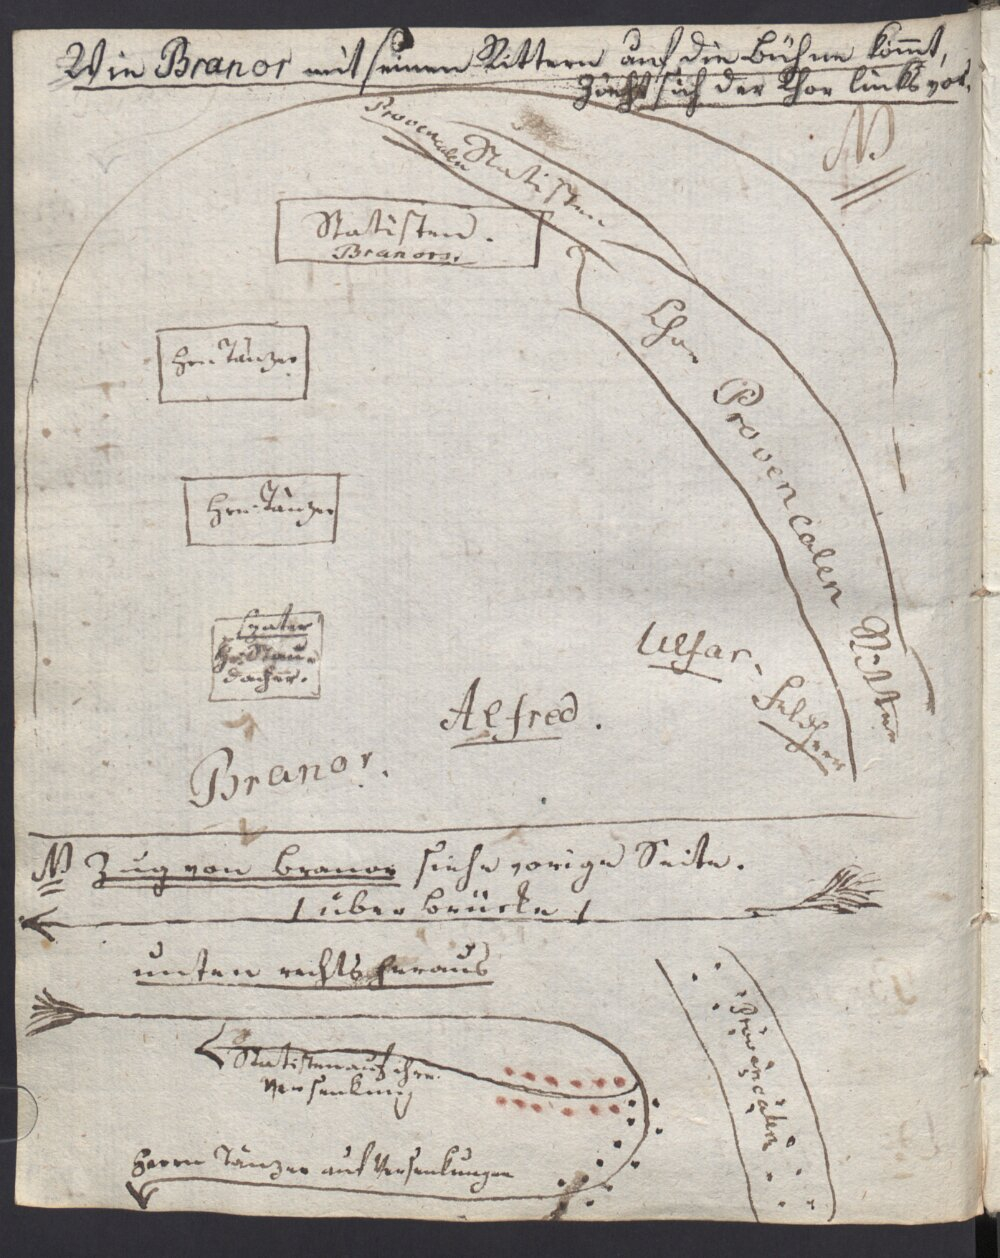 Wie Branor mit seinen Rittern auf die Bühne kommt,
zieht sich der Chor links vor.
NB
Provencalen
Statisten
Statisten.
Branors.
Chor Provencalen Ritter
Hrn Tänzer
Hrn Tänzer
später
dacher.
Ulfar.
Feldherr
Alfred.
Branor.
NB Zug von Branor siehe vorige Seite.
über Brücke
unten rechts heraus
Statisten auf ihre
Versenkung
Provencalen
Herrn Tänzer auf Versenkungen